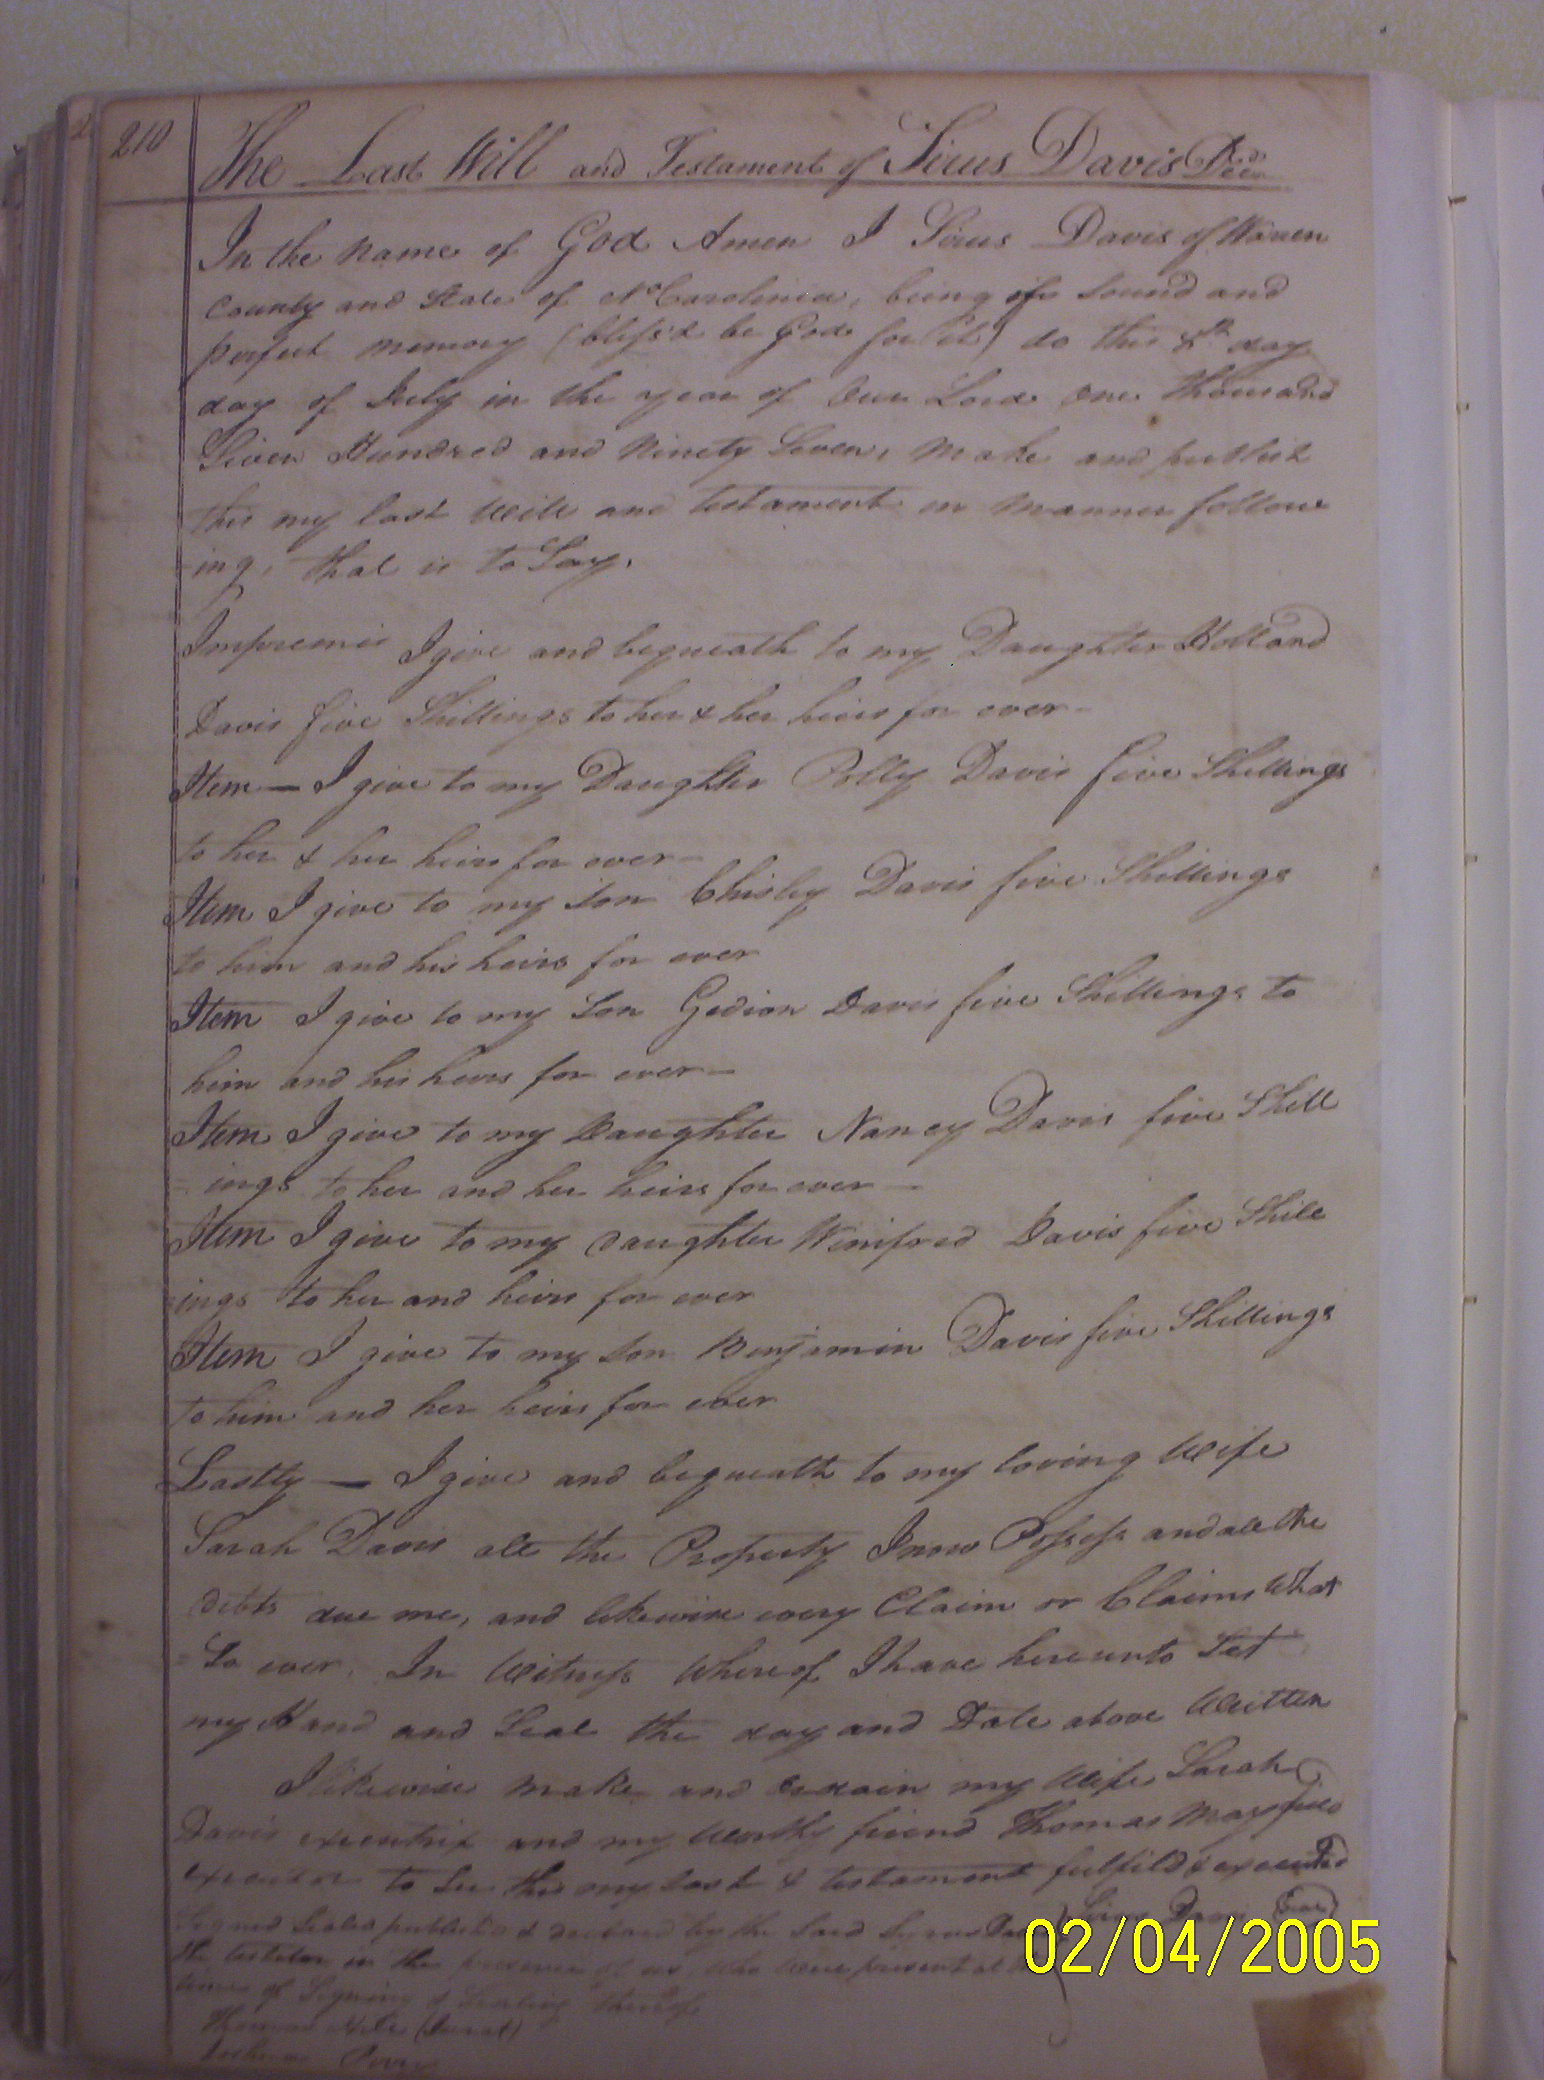 210
The Last Will and Testament of Sirus Davis Decd.
In the name of God Amen I Sirus Davis of Warren
County and State of No Carolina, being of sound and
perfect memory (bless'd be God for it) do this day
day of July in the year of Our Lord One thousand
Seven Hundred and Ninety Seven, make and publish
this my last Will and testament in manner follow
-ing, that is to Say,
Impremis I give and bequeath to my Daughter Holland
Davis five Shillings to her & her heirs for ever-
Item — I give to my Daughter Polly Davis five Shillings
to her & her heirs for ever-
Item I give to my son Chisley Davis five Shillings
to him and his heirs for ever
Item I give to my Son Gedion Davis five Shillings to
him and his heirs for ever-
Item I give to my Daughter Nancy Davis five Shill
=ings to her and her heirs for ever —
Item I give to my daughter Winifred Davis five Shill
=ings to her and heirs for ever
Item I give to my son Benjamin Davis five Shillings
to him and her heirs for ever
Lastly — I give and bequeath to my loving Wife
Sarah Davis all the Property I now Possess and all the
debts due me, and likewise every Claim or Claims What
=So ever. In Witness Whereof I have hereunto Set
my Hand and Seal the day and Date above Written
I likewise make and ordain my Wife Sarah
Davis executrix and my Worthy friend Thomas Mayfield
executor to See this my last & testament fulfild & executed
Signed Sealed publish'd & declard by the Said Sirus Davis } Sirus Davis (Seal)
the testator in the presence of us, who were present at the
time of Signing & Sealing thereof
Thomas (Jurat)
Perry
02/04/2005